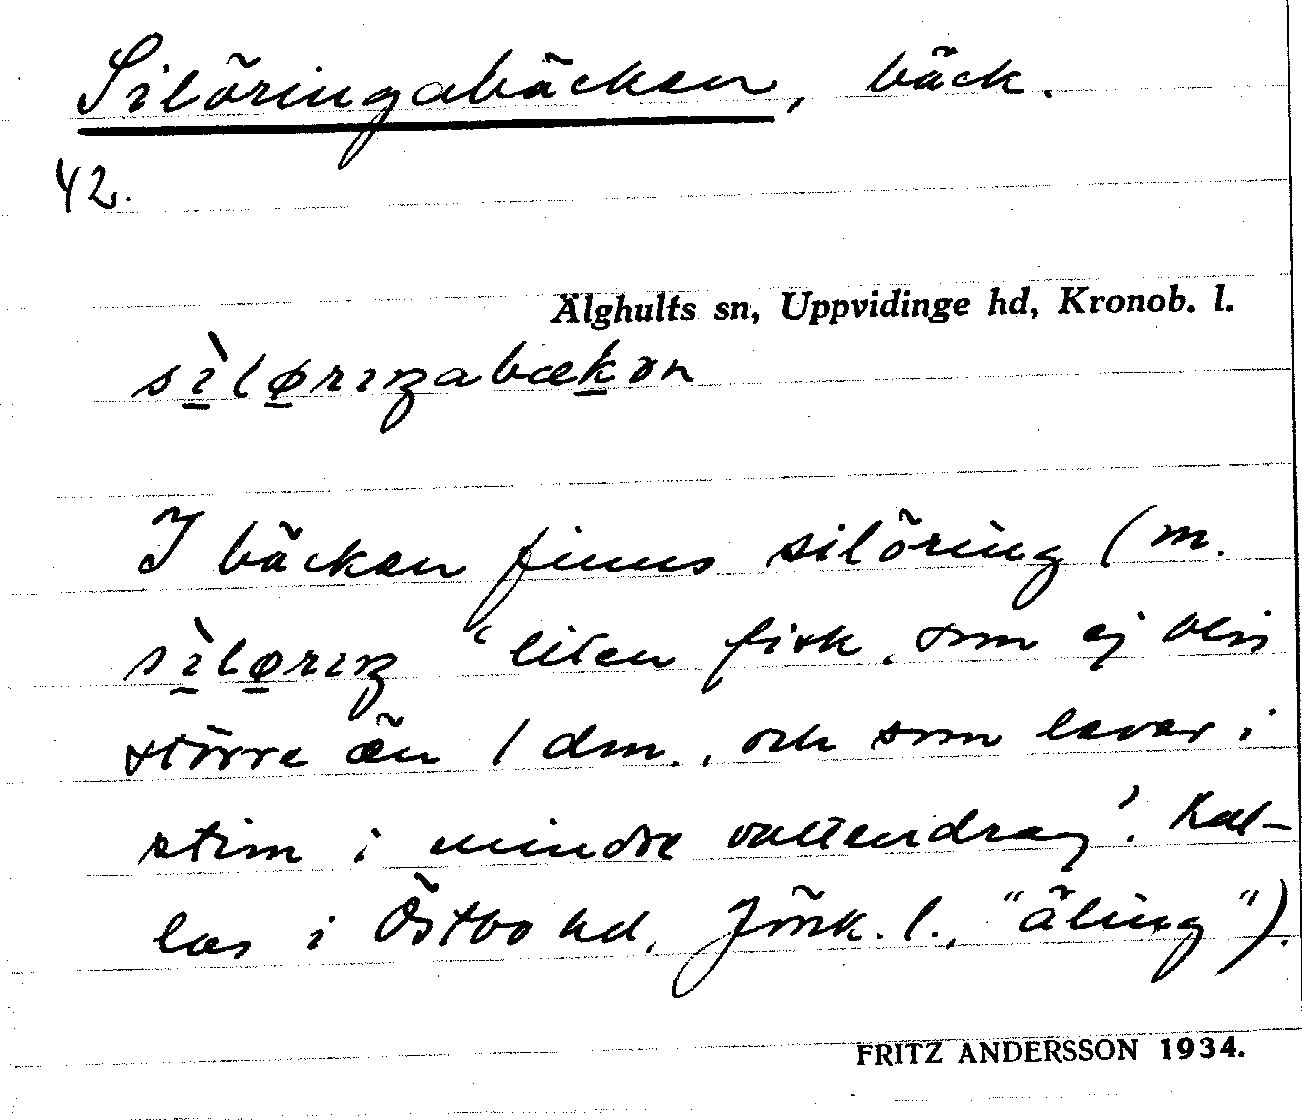 Silöringabäcken, bäck.
42.
Älghults sn, Uppvidinge hd, Kronob. l.
sìlørıŋabækən
I bäcken finns silöring (m.
sìlørıŋ 'liten fisk, som ej blir
större än 1 dm., och som lever i
stim i mindre vattendrag'. Kal-
las i Östbo hd, Jönk. l., "äling").
FRITZ ANDERSSON 1934.